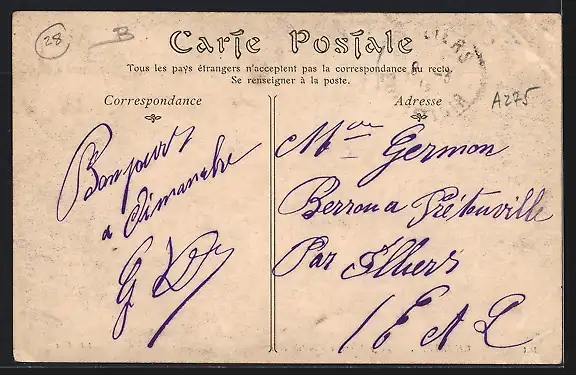 28
B
Carte Postale
Tous les pays étrangers n'acceptent pas la correspondance au recto.
Se renseigner à la poste.
Correspondance
Adresse
A275
Bonjour
a Dimanche
G
Mme Germon
Berrou a Prétouville
Par Illiers
E A L